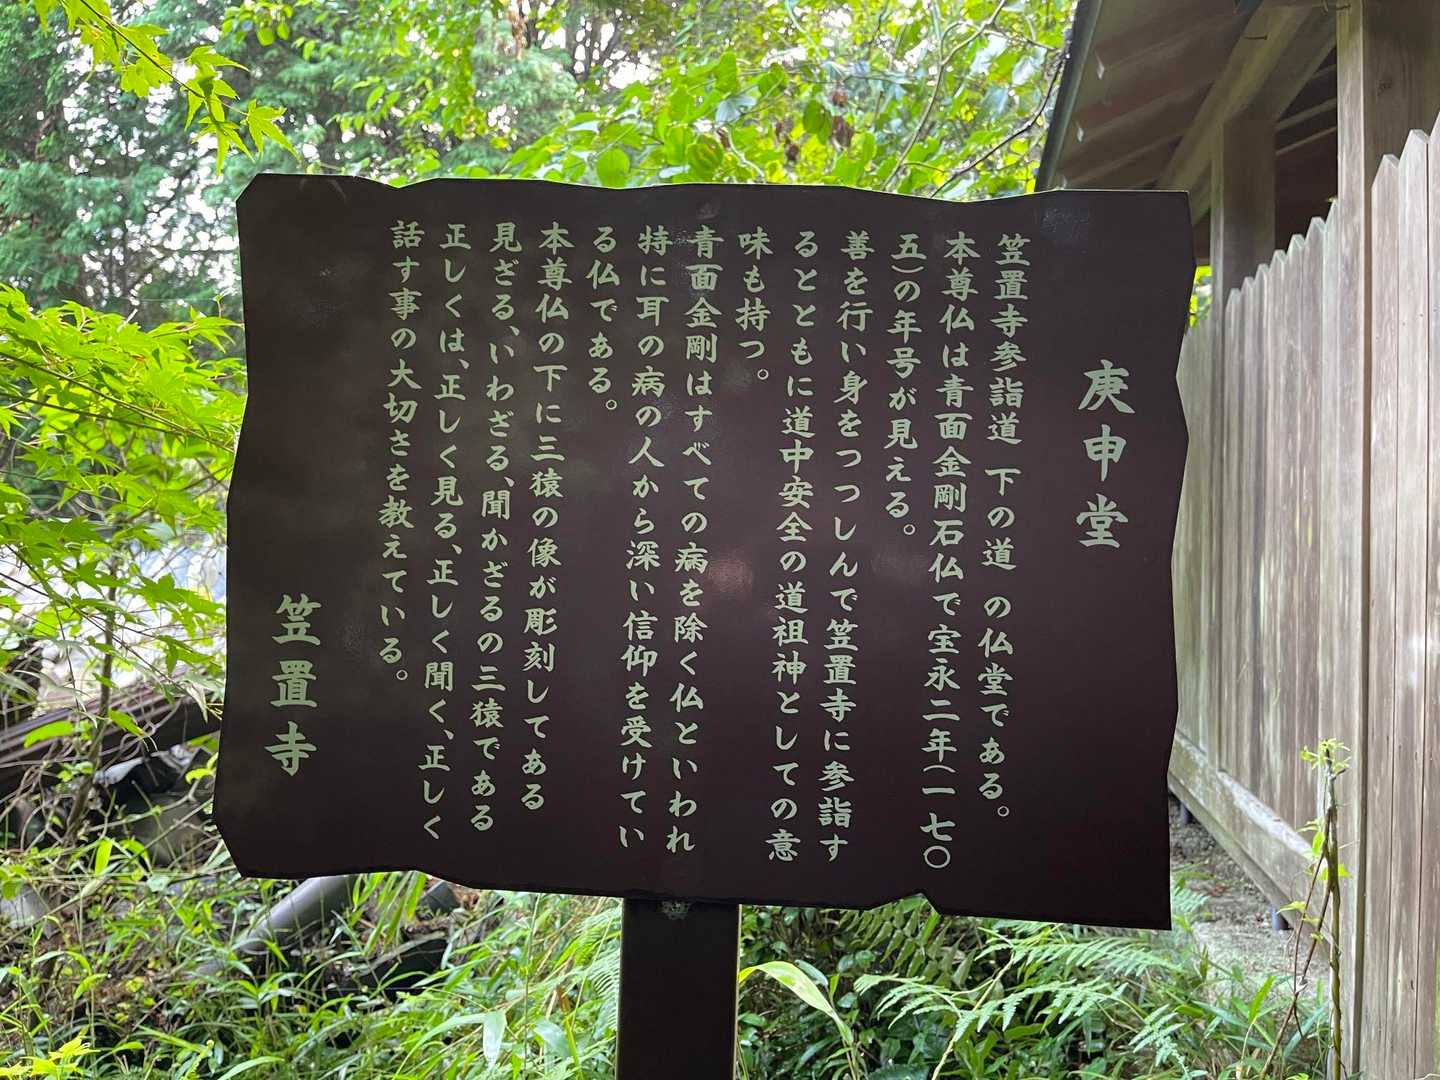 庚申堂
笠置寺参詣道 下の道 の仏堂である。
本尊仏は青面金剛石仏で宝永二年(一七〇
五)の年号が見える。
善を行い身をつつしんで笠置寺に参詣す
るとともに道中安全の道祖神としての意
味も持つ。
青面金剛はすべての病を除く仏といわれ
特に耳の病の人から深い信仰を受けてい
る仏である。
本尊仏の下に三猿の像が彫刻してある
見ざる、いわざる、聞かざるの三猿である
正しくは、正しく見る、正しく聞く、正しく
話す事の大切さを教えている。
笠置寺